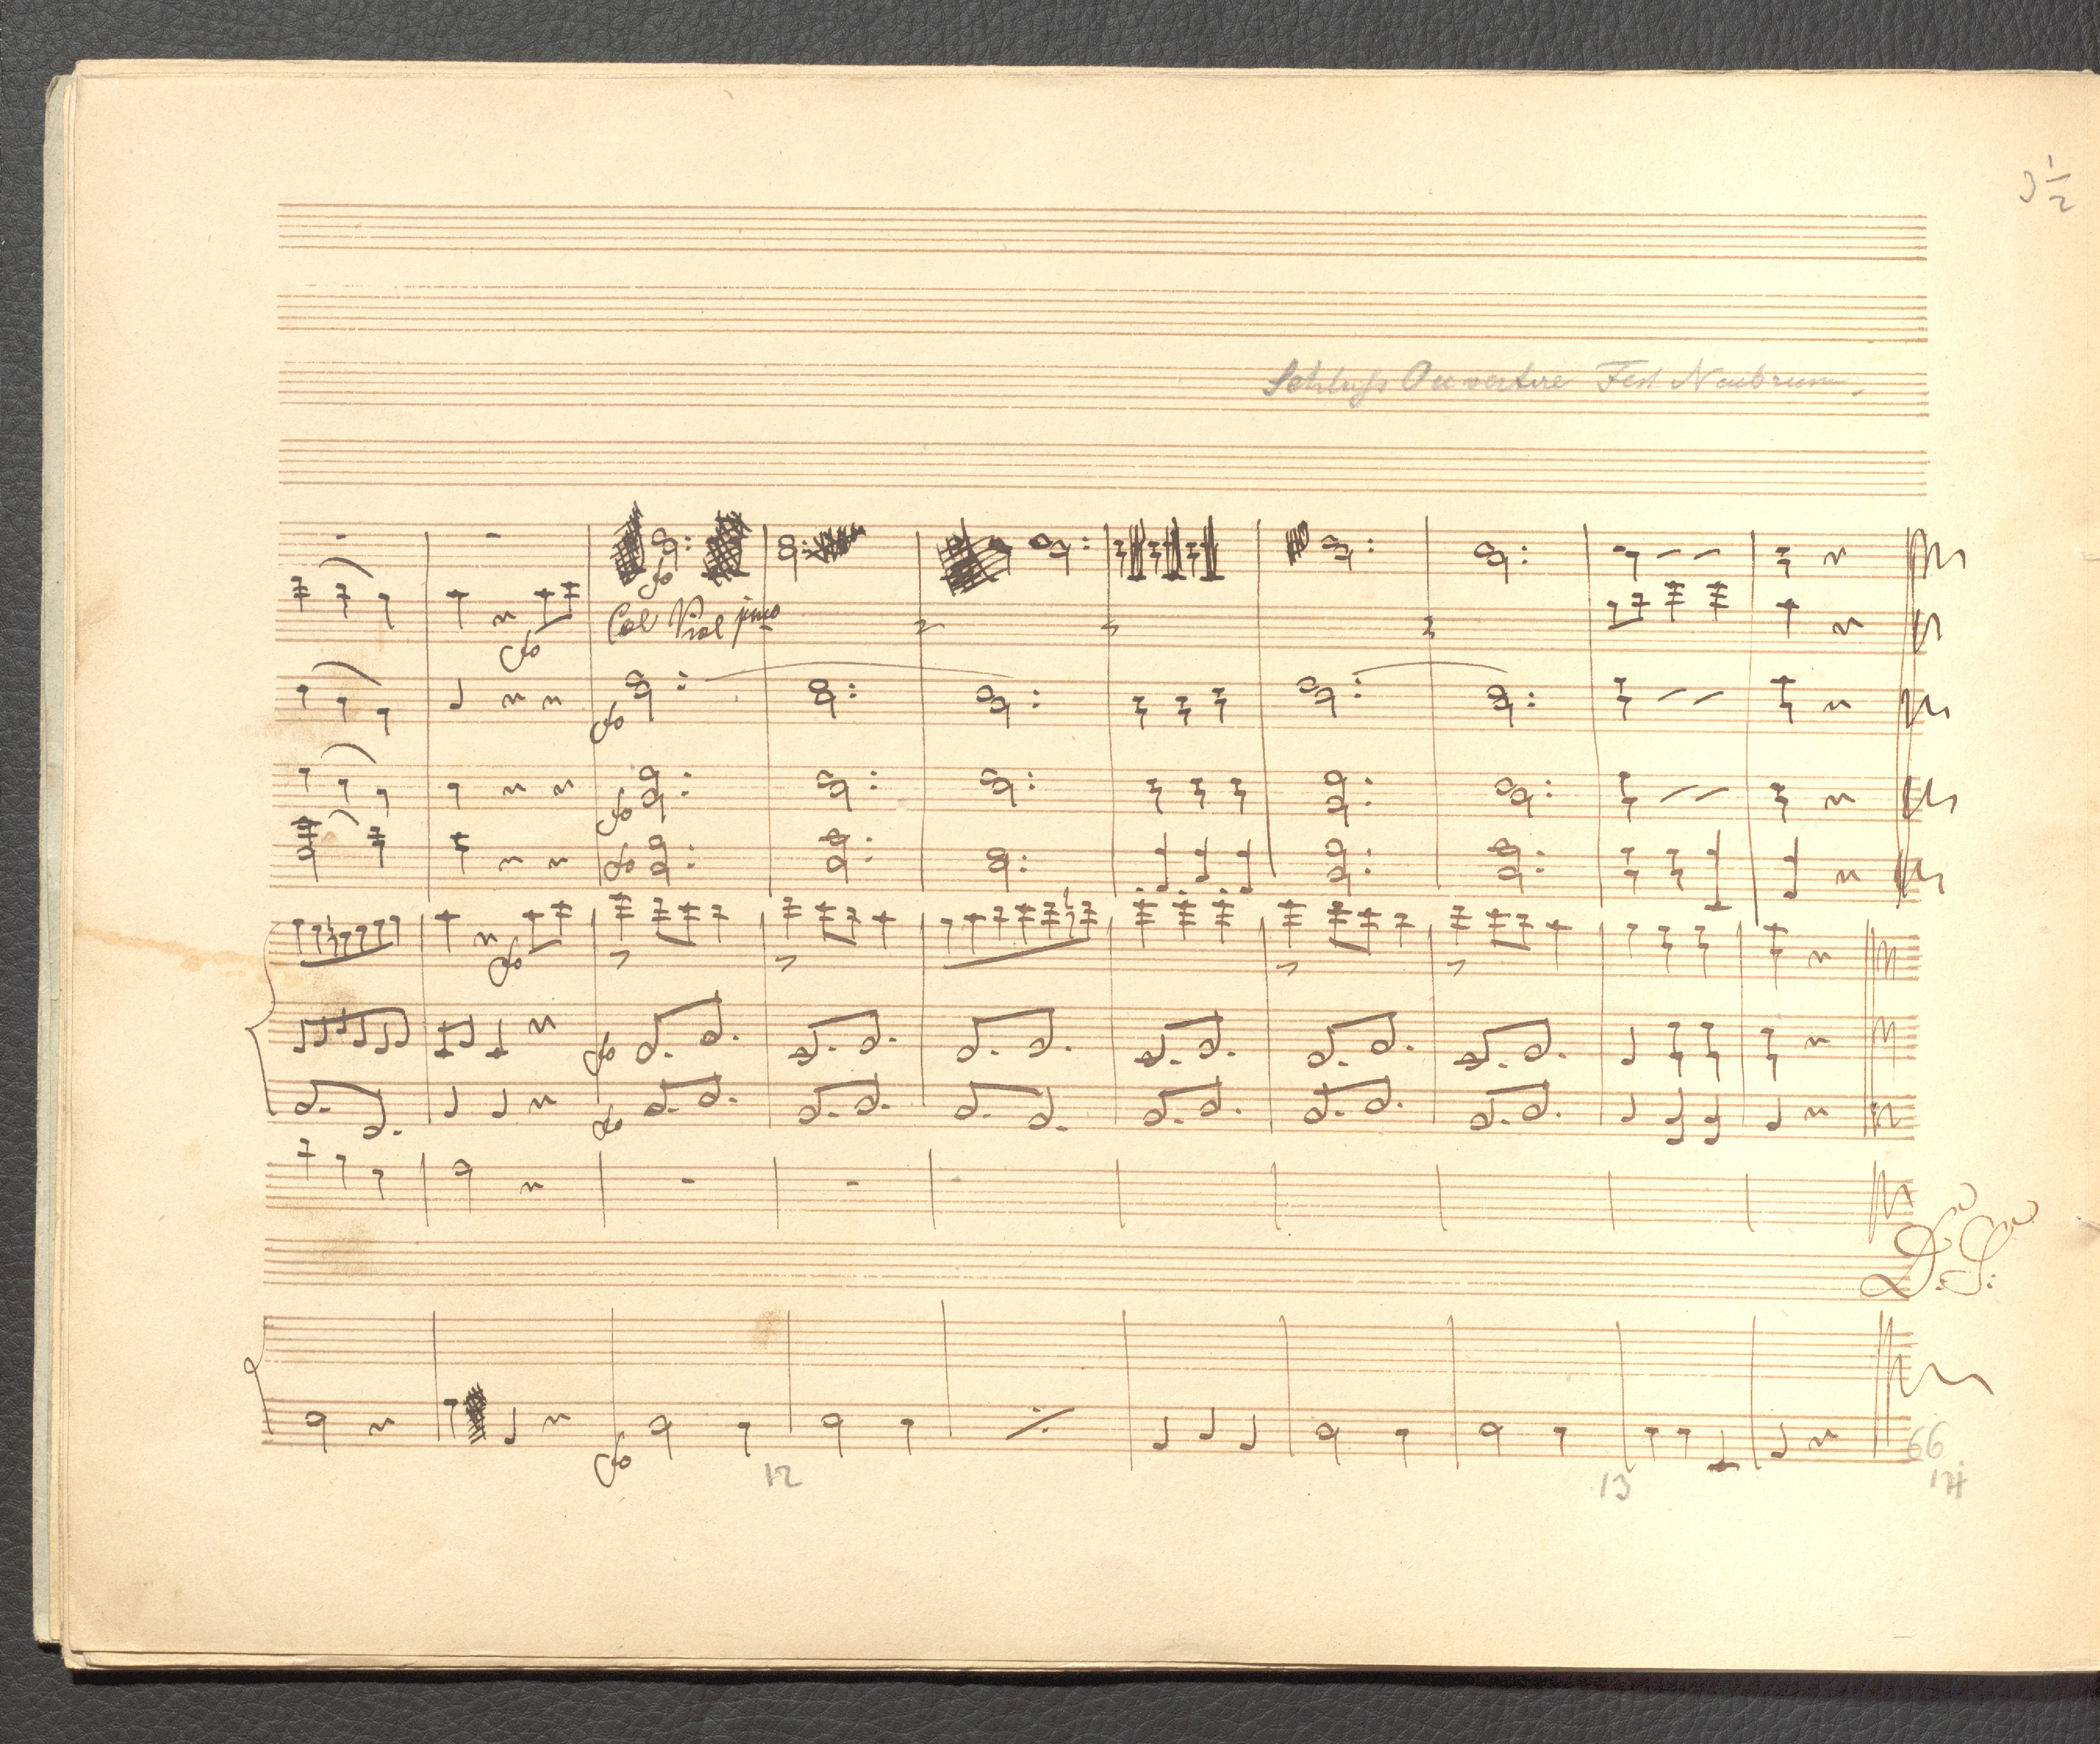 3 1/2
Schluss Ouverture Fest
fo
Col Viol jmo
fo
fo
fo
fo
fo
fo
D. S.
fo
66
12
13
14